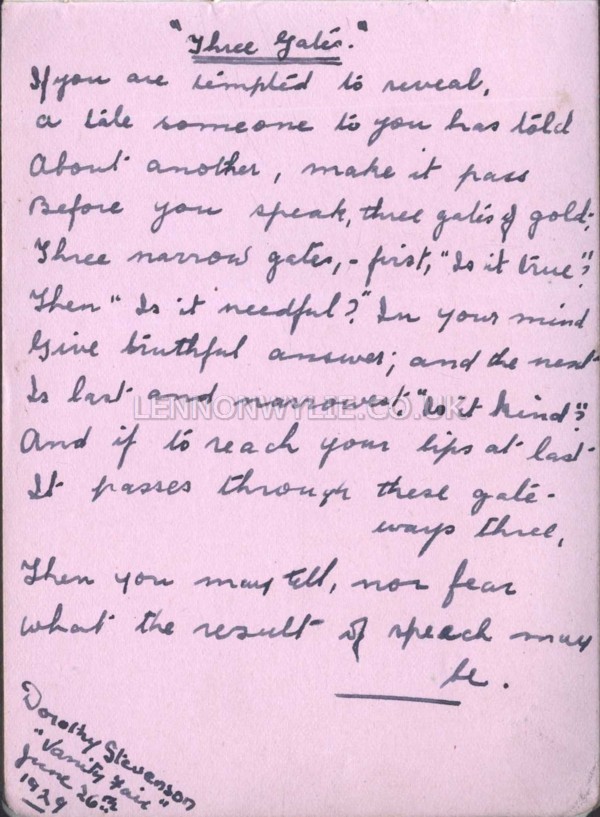 "Three Gates."
If you are tempted to reveal,
A tale someone to you has told
About another, make it pass
Before you speak, three gates of gold;
Three narrow gates, - first, "Is it true"?
Then "Is it needful?" In your mind
Give truthful answer; and the next
Is last and narrowest "Is it kind"?
LENNONWYLIE.CO.UK
And if to reach your lips at last
It passes through these gate-
ways three,
Then you may tell, nor fear
What the result of speech may
be.
Dorothy Stevenson
"Vanity Fair"
June 26th
1929